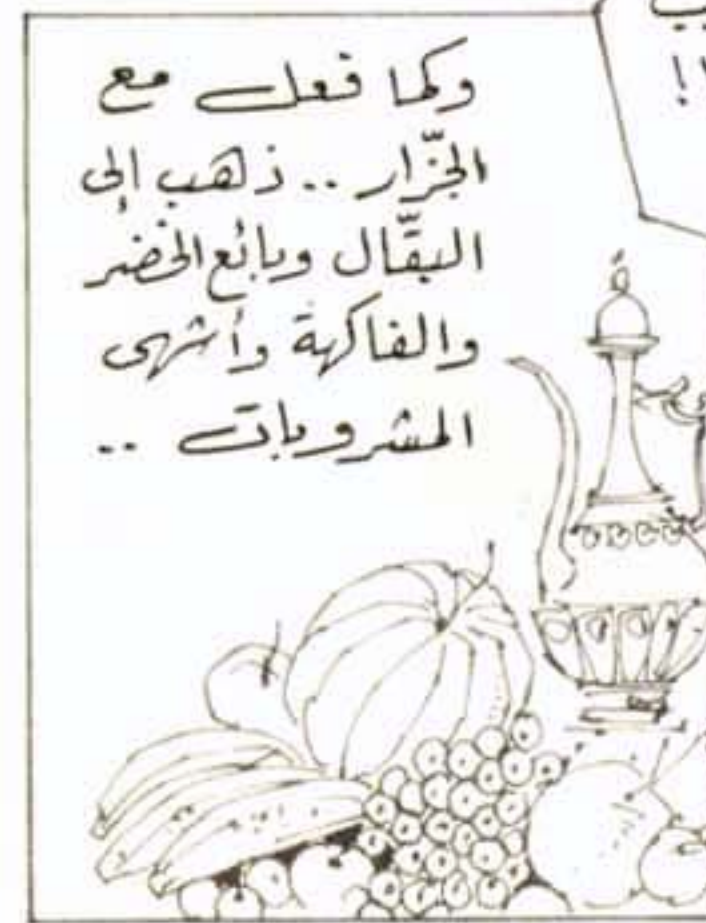 وكما فعل مع
الجزّار .. ذهب إلى
البقّال وبائع الخضر
والفاكهة وأشهى
المشروبات ..